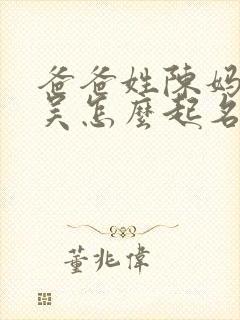 爸爸姓陳媽
吴怎麼起名
董兆偉